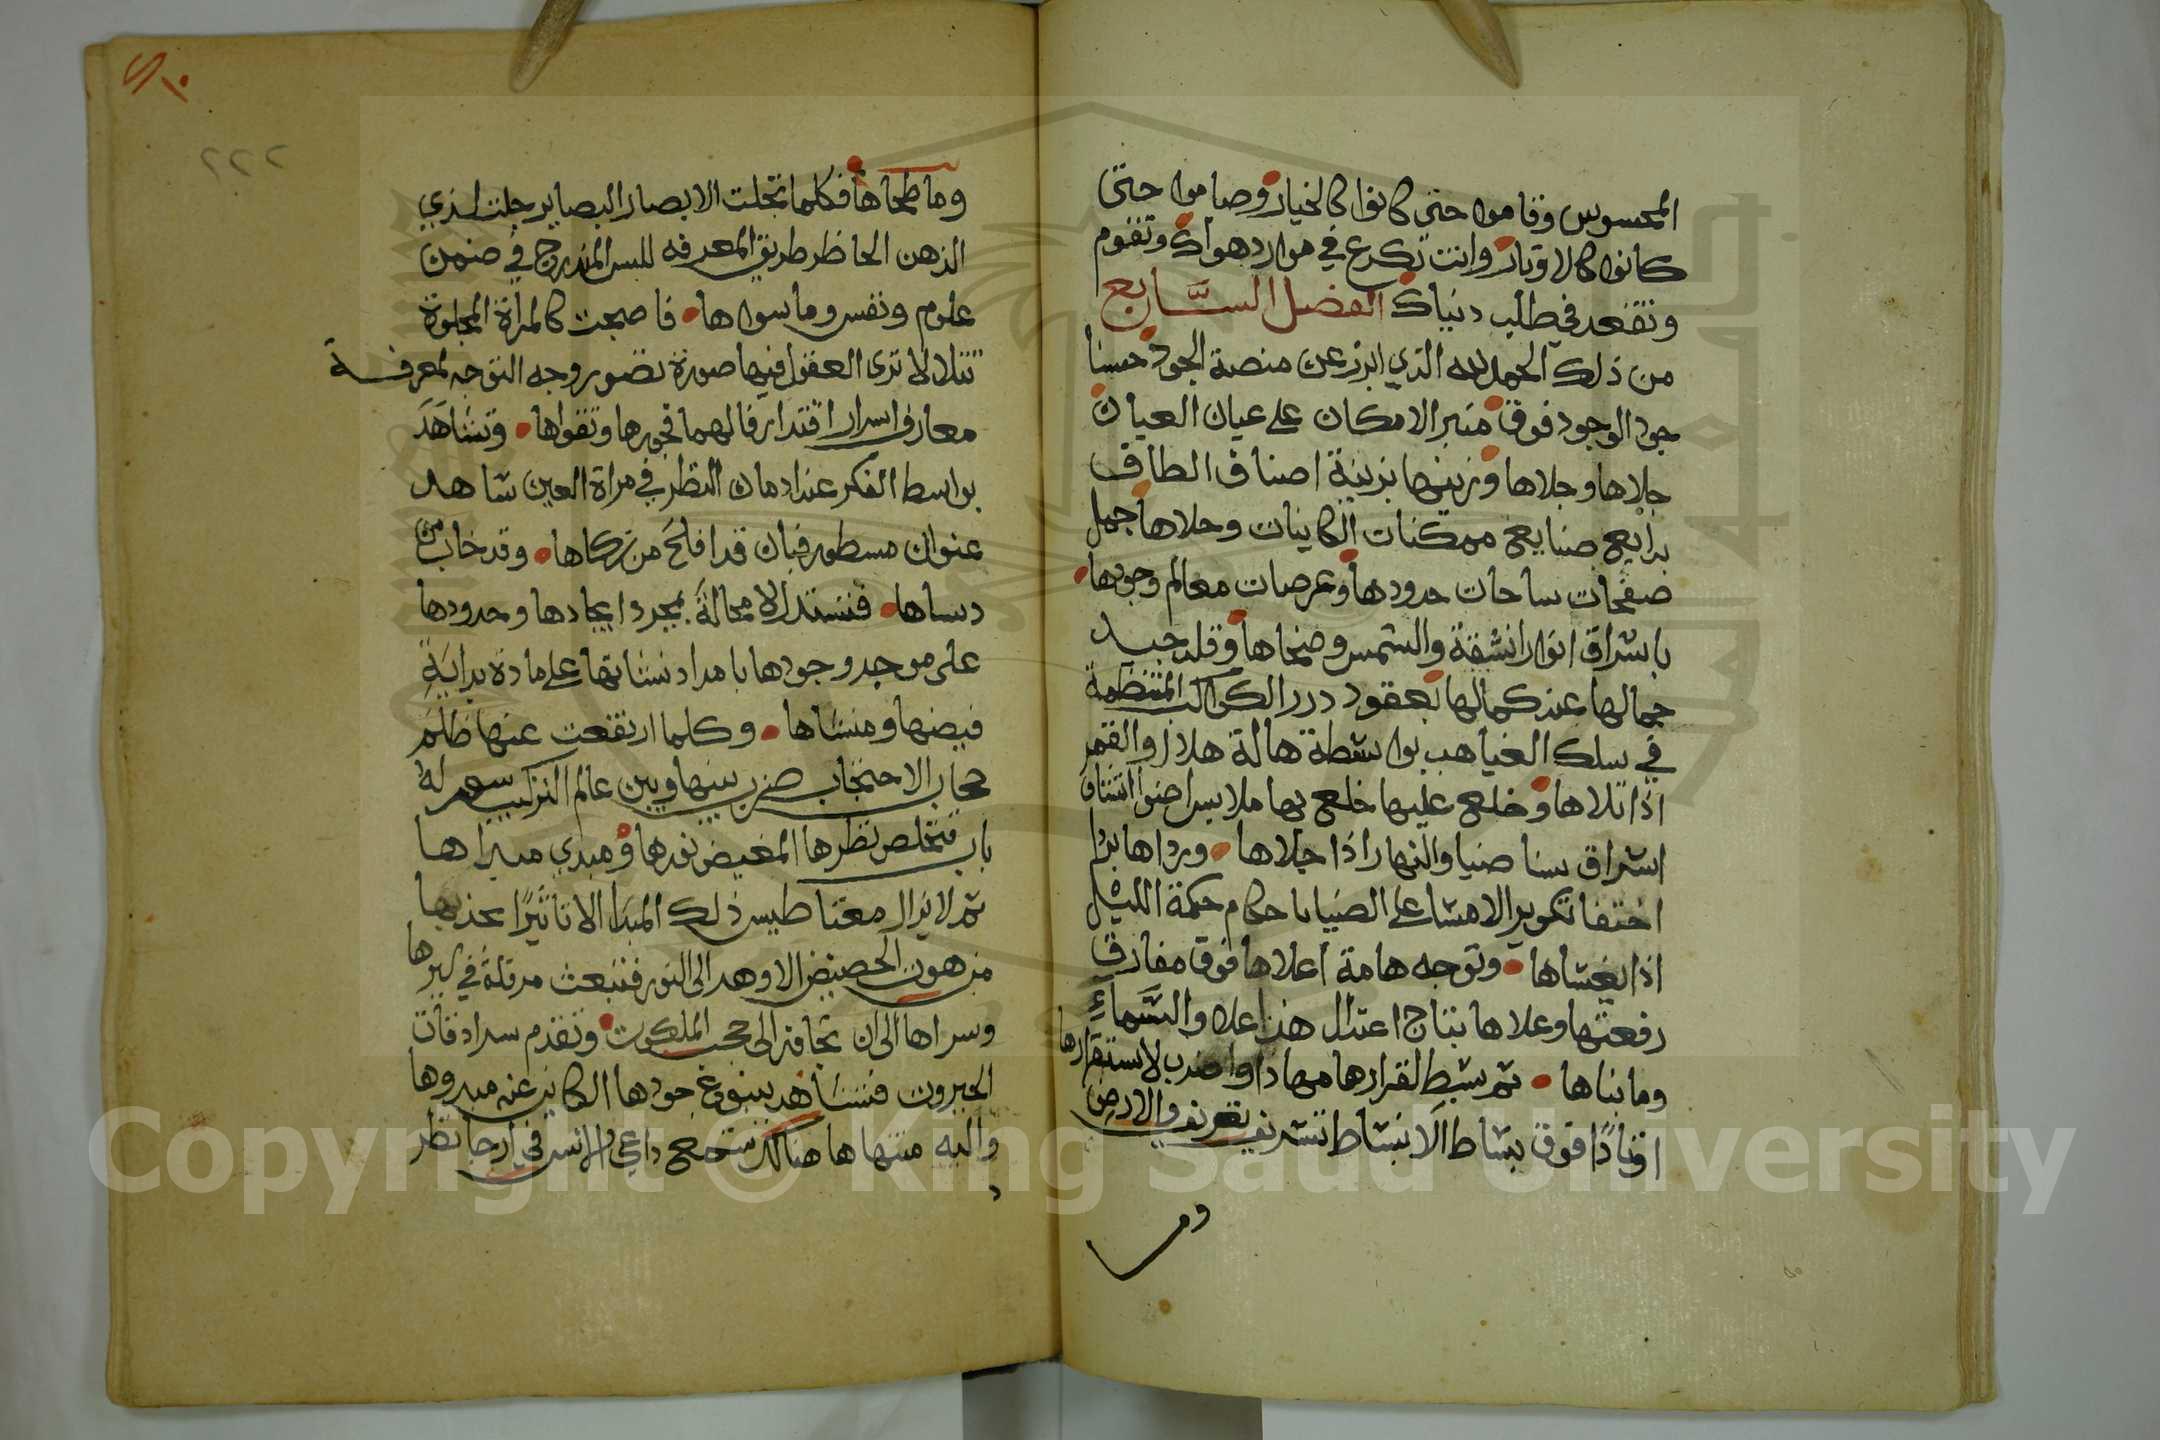 المحسوس وقاموا حتى كانوا كالخيار وصاموا حتى
كانوا كالاوتار وانت تكرع في موارد هواك وتقوم
وتقعد في طلب دنياك الفصل السابع
من ذلك الحمد لله الذي ابرز عن منصة الجود حسنا
جود الوجود فوق منبر الامكان على عيان العيان
جلاها وجلاها وزينها بزينة اصناف الطاف
بدايع صنايع ممكنات الكاينات وحلاها جمل
صفحات ساحات حدودها وعرصات معالم وجودها
باشراق انوار اشقة والشمس وضحاها وقلد جيد
جمالها عند كمالها بعقود درر الكواكب المنتظمة
في سلك الغياهب بواسطة هالة هلال والقمر
اذا تلاها وخلع عليها خلع بها ملابس اضوا اتساق
اشراق سنا ضيا والنهار اذا جلاها ورداها بردا
اختفا تكوير الامشا على الضيا باحكام حكمة الليل
اذا يغشاها وتوجه هامة اعلاها فوق مفارق
رفعتها وعلاها بتاج اعتدال هذا علا والسماء
وما بناها ثم بسط لقرارها مهادا واضرب لاستقرارها
اوتادًا فوق بساط الانبساط تشريف تعريف والارض
وما
٢٢٢
وما طحاها فكلما تجلت الابصار البصاير جلت لذي
الذهن الحاظر طريق المعرفه للسر المندرج في ضمن
علوم ونفس وما سواها فاصبحت كالمراة المجلوة
تتلالا ترى العقول فيها صورة تصور وجه التوجه لمعرفة
معارف اسرار اقتدار فالهمها فجورها وتقواها وتشاهد
بواسط الفكر عند ادمان النظر في مراة العين شاهد
عنوان مسطور فبان قد افلح من زكاها وقد خاب من
دساها فتستدل لا محالة بمجرد ايجادها وحدودها
على موجد وجودها بامداد نشاتها على مادة بداية
فيضها ومنشاها وكلما ارتفعت عنها ظلم
حجاب الاحتجاب ضرب بينها وبين عالم التركيب بسور له
باب فتخلص نظرها المغيض نورها ومبدي مسراها
ثم لا يزال مغناطيس ذلك المبدا الا تاثيرًا يجذبها
من هون الحضيض الاوهد الى النور فتنبعث مرقلة في سيرها
وسراها الى ان تجاوز الى حجب الملكوت وتقدم سرادقات
الجبروت فتشاهد ينبوع جودها الكاين عنه مبدوها
واليه منتهاها هنالك تستجمع داعي الانس في ارجا نظر